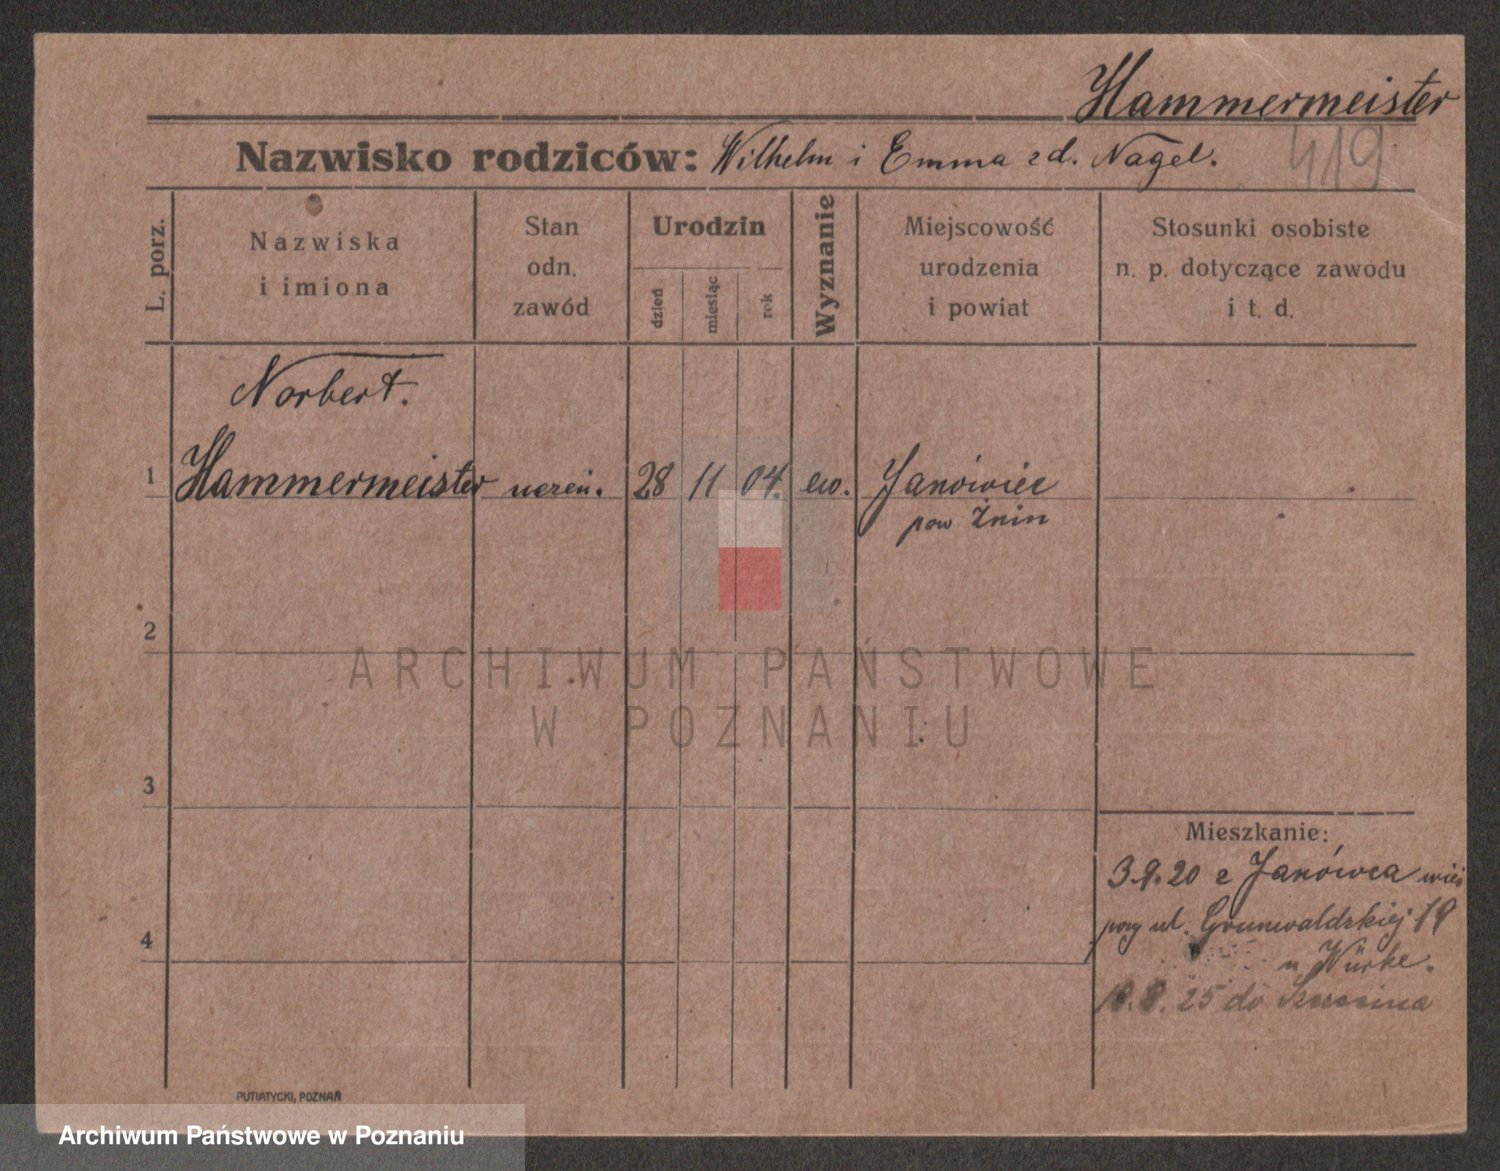 Hammermeister
419
Nazwisko rodziców: Wilhelm i Emma zd. Nagel.
L. porz.
Nazwiska
i imiona
Stan
odn.
zawód
Urodzin
dzień
miesiąc
rok
Wyznanie
Miejscowość
urodzenia
i powiat
Stosunki osobiste
n. p. dotyczące zawodu
i t. d.
Norbert.
1 Hammermeister uczeń. 28 11 04. ew. Janówiec
pow Żnin
2
3
4
Mieszkanie:
3.9.20 z Janówca
przy ul. Grunwaldzkiej 19
u Würke.
25 do Szczecina
PUTIATYCKI, POZNAŃ
ARCHIWUM PAŃSTWOWE
W POZNANIU
Archiwum Państwowe w Poznaniu